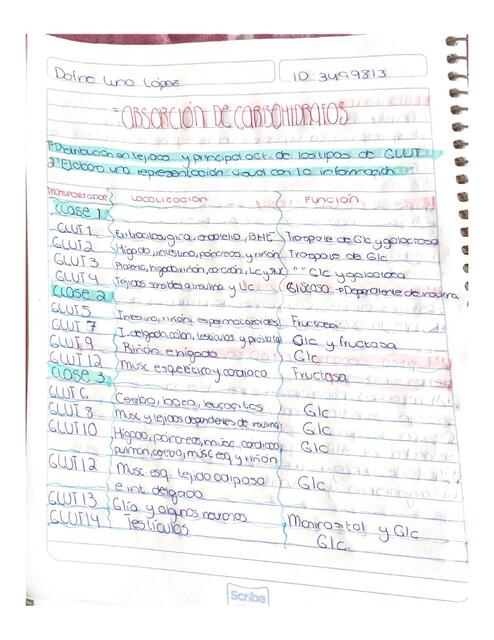 Doine Luna López
ID 3499813
"ABSORCIÓN DE CARBOHIDRATOS
1° Distribución en tejidos y principal act. de los tipos de GLUT
2° Elabora una representación visual con la información
TRANSPORTADOR LOCALIZACIÓN FUNCIÓN
Clase 1
GLUT1 BHE Transporte de Glc y galactosa
GLUT2 Hígado, intestino, páncreas y riñón Transporte de Glc
GLUT3 Placenta, hígado, riñón, corazón, LC y SNC " " Glc y galactosa
GLUT4 Tejidos sensibles a insulina y LC Glucosa → Dependiente de insulina
Clase 2
GLUT5 Intestino, riñón, espermatozoides Fructosa
GLUT 7 I. delgado, colon, testículos y próstata Glc y fructosa
GLUT9 Riñón e hígado Glc
GLUT12 Musc esquelético y cardiaco Fructosa
Clase 3
GLUT6 Cerebro, bazo, leucocitos Glc
GLUT 8 Musc y tejidos dependientes de insulina Glc
GLUT10 Hígado, páncreas, músc. cardiaco, Glc
pulmón, cerebro, músc esq y riñón
GLUT12 Musc esq. tejido adiposo Glc
e int. delgado
GLUT13 Glía y algunas neuronas y Glc
GLUT14 Testículos Glc.
Scribe